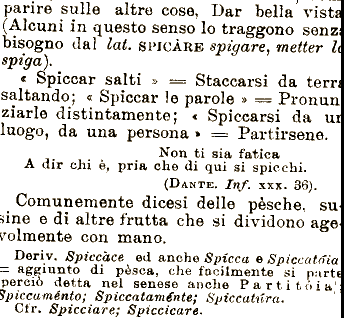 parire sulle altre cose, Dar bella vista
(Alcuni in questo senso lo traggono senz
bisogno dal lat. SPICÀRE spigare, metter l
spiga).
« Spiccar salti » = Staccarsi da terr
saltando; « Spiccar le parole » = Pronun
ziarle distintamente; « Spiccarsi da un
luogo, da una persona » = Partirsene.
Non ti sia fatica
A dir chi è, pria che di qui si spicchi.
(DANTE. Inf. XXX. 36).
Comunemente dicesi delle pèsche, su-
sine e di altre frutta che si dividono age-
volmente con mano.
Deriv. Spiccàce ed anche Spìcca e Spiccatóia
= aggiunto di pèsca, che facilmente si parte
perciò detta nel senese anche Partitóia;
Spiccaménto; Spiccataménte; Spiccatúra.
Cfr. Spicciare; Spiccicare.